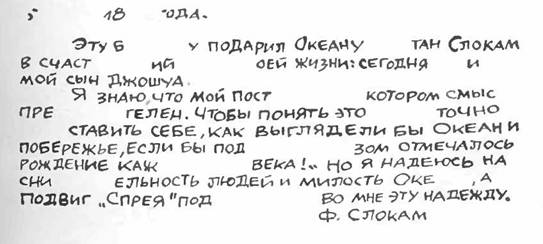 5 18 ОДА.
ЭТУ Б У ПОДАРИЛ ОКЕАНУ ТАН СЛОКАМ
В СЧАСТ ИЙ ОЕЙ ЖИЗНИ: СЕГОДНЯ И
МОЙ СЫН ДЖОШУА.
Я ЗНАЮ, ЧТО МОЙ ПОСТ КОТОРОМ СМЫС
ПРЕ ГЕЛЕН. ЧТОБЫ ПОНЯТЬ ЭТО ТОЧНО
СТАВИТЬ СЕБЕ, КАК ВЫГЛЯДЕЛИ БЫ ОКЕАН И
ПОБЕРЕЖЬЕ, ЕСЛИ БЫ ПОД ЗОМ ОТМЕЧАЛОСЬ
РОЖДЕНИЕ КАЖ ВЕКА!.. НО Я НАДЕЮСЬ НА
СНИ ЕЛЬНОСТЬ ЛЮДЕЙ И МИЛОСТЬ ОКЕ , А
ПОДВИГ „СПРЕЯ" ПОД ВО МНЕ ЭТУ НАДЕЖДУ.
Ф. СЛОКАМ